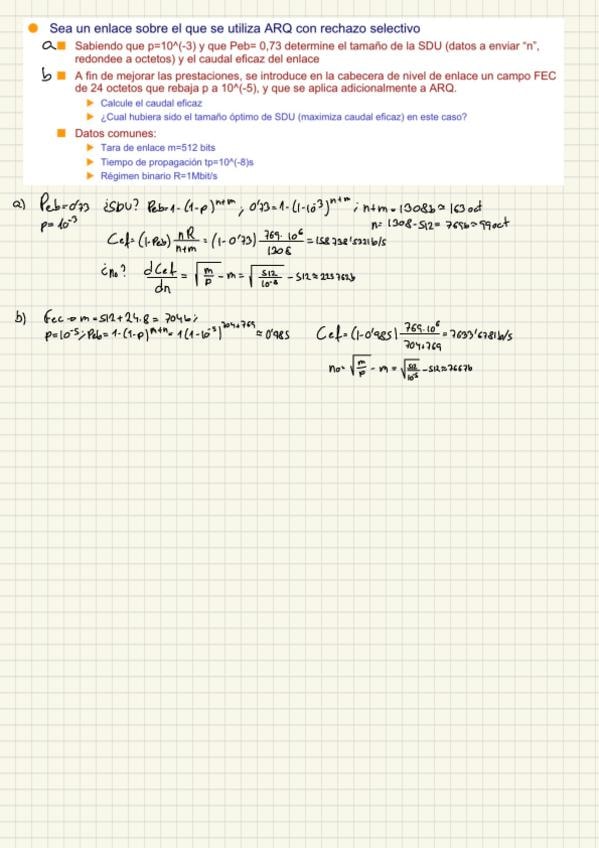 Sea un enlace sobre el que se utiliza ARQ con rechazo selectivo
a Sabiendo que p=10^(-3) y que Peb= 0,73 determine el tamaño de la SDU (datos a enviar “n”,
redondee a octetos) y el caudal eficaz del enlace
b A fin de mejorar las prestaciones, se introduce en la cabecera de nivel de enlace un campo FEC
de 24 octetos que rebaja p a 10^(-5), y que se aplica adicionalmente a ARQ.
Calcule el caudal eficaz
¿Cual hubiera sido el tamaño óptimo de SDU (maximiza caudal eficaz) en este caso?
Datos comunes:
Tara de enlace m=512 bits
Tiempo de propagación tp=10^(-8)s
Régimen binario R=1Mbit/s
a) Peb=0'73 ¿SDU? Peb=1-(1-p)^n+m; 0'73=1-(1-10^-3)^n+m; n+m=1308b≈163oct
p=10^-3 n=1308-512=769b≈99oct
Cef=(1-Peb) nR/n+m=(1-0'73) 769·10^6/1308=158738'5321b/s
¿no? dCef/dn=√m/p-m=√512/10^-8-512≈225762b
b) Fec→m=512+24·8=704b;
p=10^-5; Peb=1-(1-p)^m+n=1(1-10^-5)^704+769≈0'985 Cef=(1-0'985) 769·10^6/704+769=7633'6781b/s
no=√m/p-m=√512/10^-5-512≈7667b